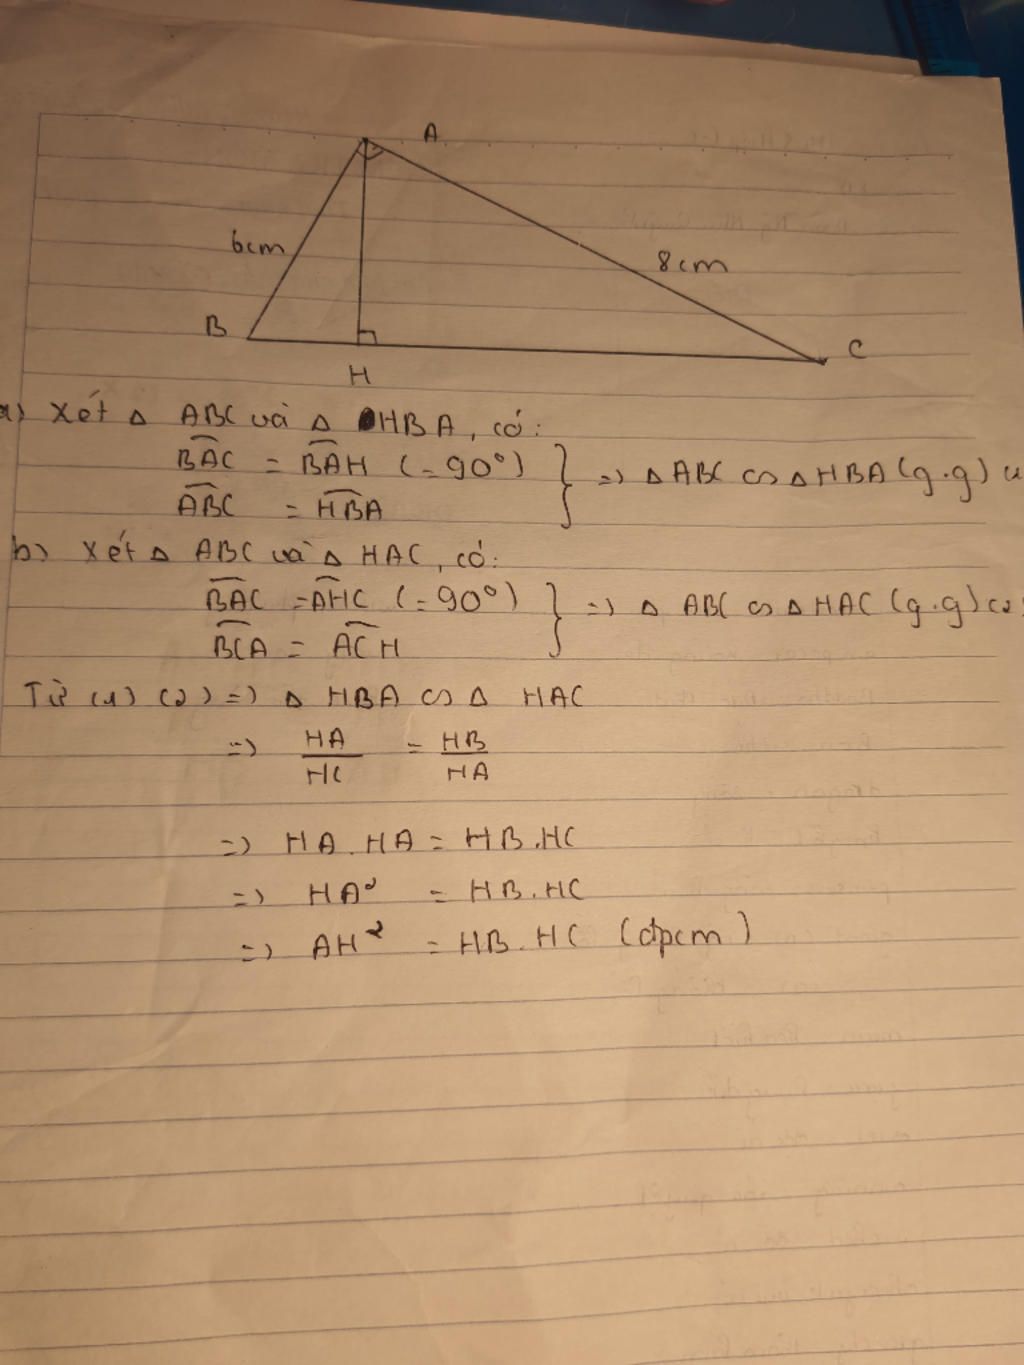 A
6cm
8cm
B
C
H
a) Xét Δ ABC và Δ HBA, có:
B̂AC = B̂AH (= 90°)
ÂBC = ĤBA
=> Δ ABC ∽ Δ HBA (g.g) (1
b) Xét Δ ABC và Δ HAC, có:
B̂AC = ÂHC (= 90°)
B̂CA = ÂCH
=> Δ ABC ∽ Δ HAC (g.g) (2)
Từ (1) (2) => Δ HBA ∽ Δ HAC
=> HA/HC = HB/HA
=> HA.HA = HB.HC
=> HA² = HB.HC
=> AH² = HB.HC (đpcm)